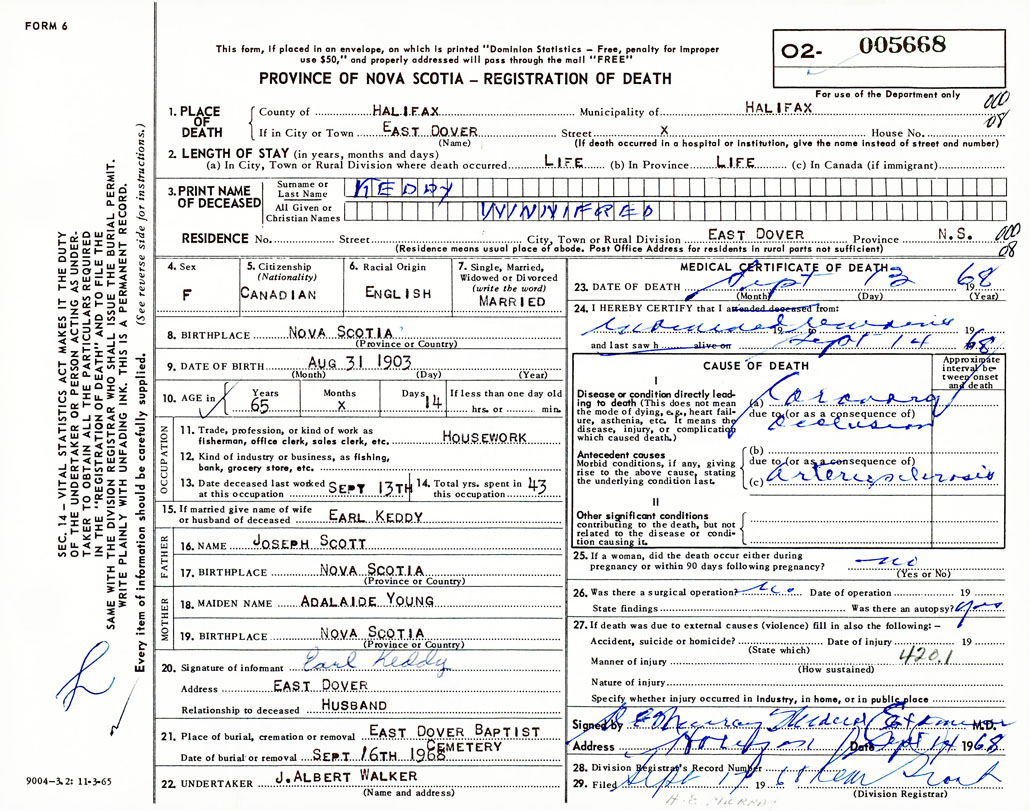 FORM 6
This form, if placed in an envelope, on which is printed "Dominion Statistics – Free, penalty for improper
use $50," and properly addressed will pass through the mail "FREE"
PROVINCE OF NOVA SCOTIA – REGISTRATION OF DEATH
O2- 005668
For use of the Department only
000
08
1. PLACE OF DEATH
County of HALIFAX Municipality of HALIFAX
If in City or Town EAST DOVER Street X House No.
(Name) (If death occurred in a hospital or institution, give the name instead of street and number)
2. LENGTH OF STAY (in years, months and days)
(a) In City, Town or Rural Division where death occurred LIFE (b) In Province LIFE (c) In Canada (if immigrant)
3. PRINT NAME OF DECEASED
Surname or Last Name KEDDY
All Given or Christian Names WINNIFRED
RESIDENCE No. Street City, Town or Rural Division EAST DOVER Province N.S.
(Residence means usual place of abode. Post Office Address for residents in rural parts not sufficient)
000
08
4. Sex
F
5. Citizenship
(Nationality)
CANADIAN
6. Racial Origin
ENGLISH
7. Single, Married,
Widowed or Divorced
(write the word)
MARRIED
8. BIRTHPLACE NOVA SCOTIA
(Province or Country)
9. DATE OF BIRTH AUG 31 1903
(Month) (Day) (Year)
10. AGE in
Years
65
Months
X
Days
14
If less than one day old
hrs. or min.
OCCUPATION
11. Trade, profession, or kind of work as
fisherman, office clerk, sales clerk, etc. HOUSEWORK
12. Kind of industry or business, as fishing,
bank, grocery store, etc.
13. Date deceased last worked
at this occupation SEPT 13TH
14. Total yrs. spent in
this occupation 43
15. If married give name of wife
or husband of deceased EARL KEDDY
FATHER
16. NAME JOSEPH SCOTT
17. BIRTHPLACE NOVA SCOTIA
(Province or Country)
MOTHER
18. MAIDEN NAME ADALAIDE YOUNG
19. BIRTHPLACE NOVA SCOTIA
(Province or Country)
20. Signature of informant Earl Keddy
Address EAST DOVER
Relationship to deceased HUSBAND
21. Place of burial, cremation or removal EAST DOVER BAPTIST
CEMETERY
Date of burial or removal SEPT 16TH 1968
22. UNDERTAKER J. ALBERT WALKER
(Name and address)
MEDICAL CERTIFICATE OF DEATH
23. DATE OF DEATH Sept 13 1968
(Month) (Day) (Year)
24. I HEREBY CERTIFY that I attended deceased from:
19 to 19
and last saw h alive on Sept 14 1968
CAUSE OF DEATH
Approximate
interval be-
tween onset
and death
I
Disease or condition directly lead-
ing to death (This does not mean
the mode of dying, e.g., heart fail-
ure, asthenia, etc. It means the
disease, injury, or complication
which caused death.)
Coronary
due to (or as a consequence of)
occlusion
Antecedent causes
Morbid conditions, if any, giving
rise to the above cause, stating
the underlying condition last.
(b)
due to (or as a consequence of)
(c) arteriosclerosis
II
Other significant conditions
contributing to the death, but not
related to the disease or condi-
tion causing it.
25. If a woman, did the death occur either during
pregnancy or within 90 days following pregnancy? no
(Yes or No)
26. Was there a surgical operation? No Date of operation 19
State findings Was there an autopsy? yes
27. If death was due to external causes (violence) fill in also the following: –
Accident, suicide or homicide? Date of injury 19
(State which)
Manner of injury 420.1
(How sustained)
Nature of injury
Specify whether injury occurred in industry, in home, or in public place
Signed by Murray Medical Examiner M.D.
Address Halifax Date Sept 14 1968
28. Division Registrar's Record Number
29. Filed Sept 17 1968
(Division Registrar)
H.E. MURRAY
SEC. 14 – VITAL STATISTICS ACT MAKES IT THE DUTY
OF THE UNDERTAKER OR PERSON ACTING AS UNDER-
TAKER TO OBTAIN ALL THE PARTICULARS REQUIRED
IN THE "REGISTRATION OF DEATH" AND TO FILE THE
SAME WITH THE DIVISION REGISTRAR WHO SHALL ISSUE THE BURIAL PERMIT.
WRITE PLAINLY WITH UNFADING INK. THIS IS A PERMANENT RECORD.
Every item of information should be carefully supplied. (See reverse side for instructions.)
9004–3.2: 11-3-65